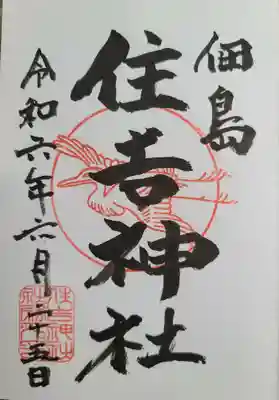 佃島
住吉神社
令和六年六月二十五日